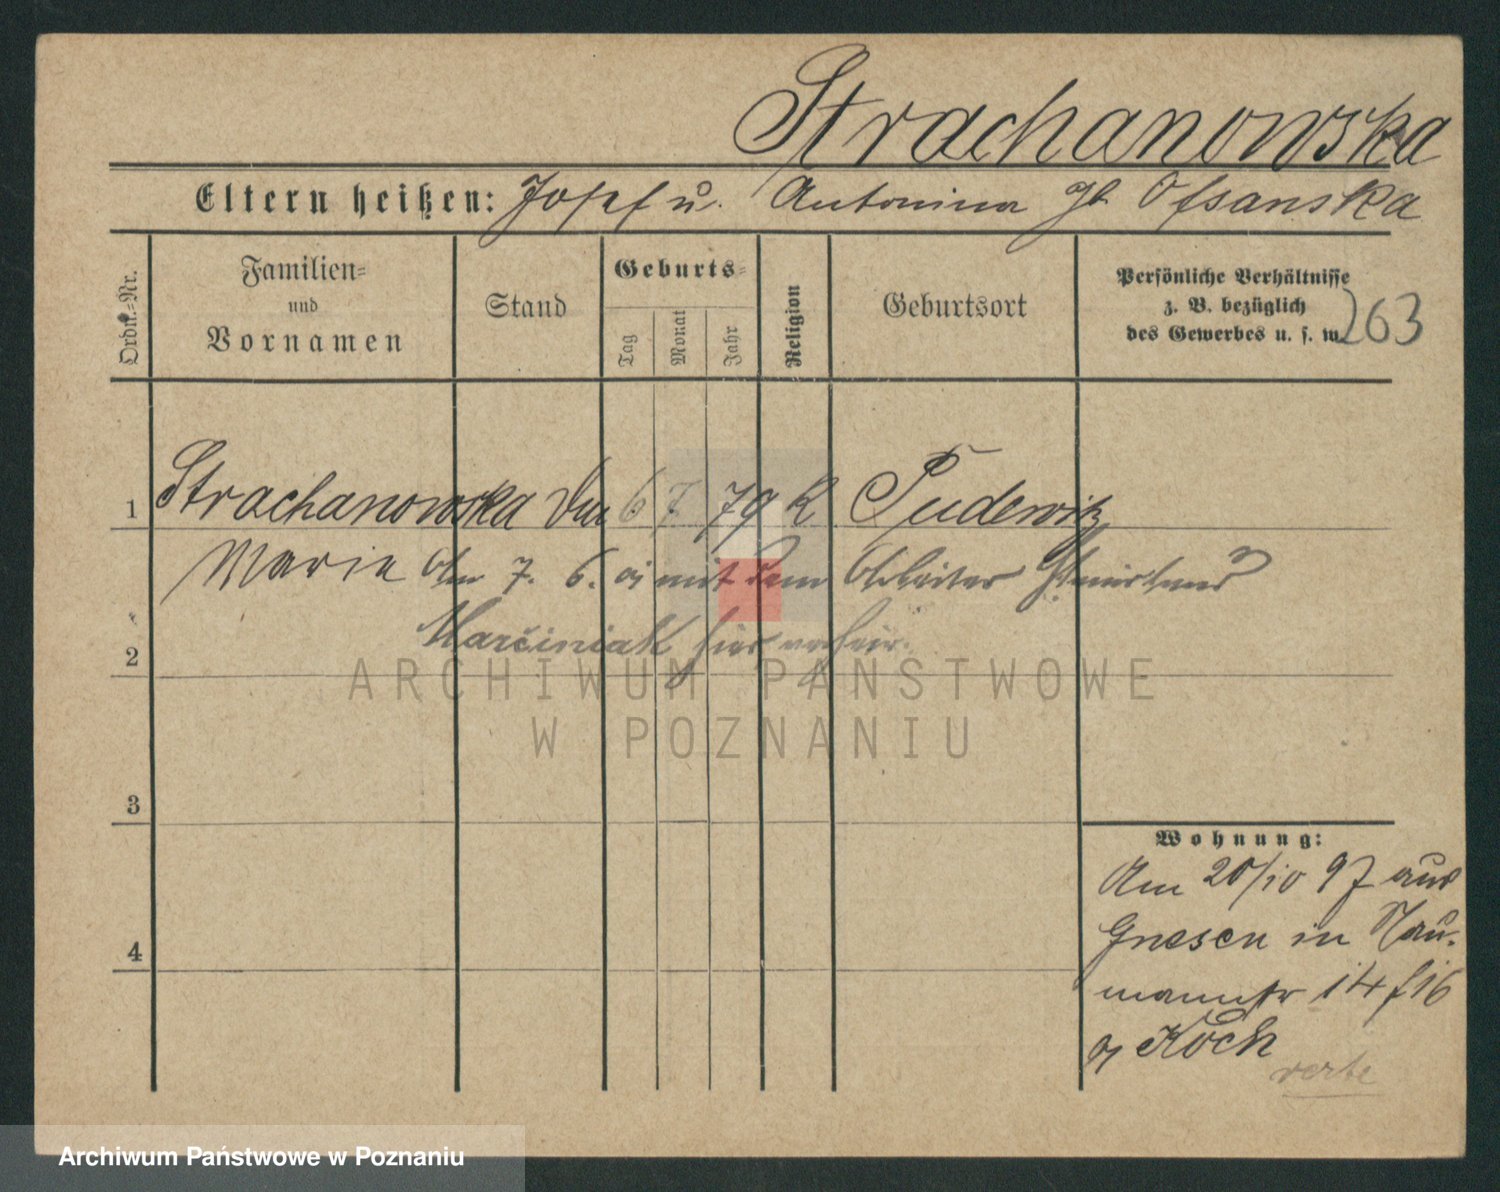 Strachanowska
Eltern heißen: Josef u. Antonina gb Ossanska
Ordn.-Nr.
Familien-
und
Vornamen
Stand
Geburts-
Tag
Monat
Jahr
Religion
Geburtsort
Persönliche Verhältnisse
z. B. bezüglich
des Gewerbes u. s. w.
263
1 Strachanowska 6 7. 79 k Pudewitz
Marie Am 7. 6. 01 mit dem Arbeiter
2 Marciniak hier verheir.
ARCHIWUM PAŃSTWOWE
W POZNANIU
3
Wohnung:
Am 20/10 97 aus
Gnesen in Nau-
4
mannstr 14/16
Koch
verte
Archiwum Państwowe w Poznaniu